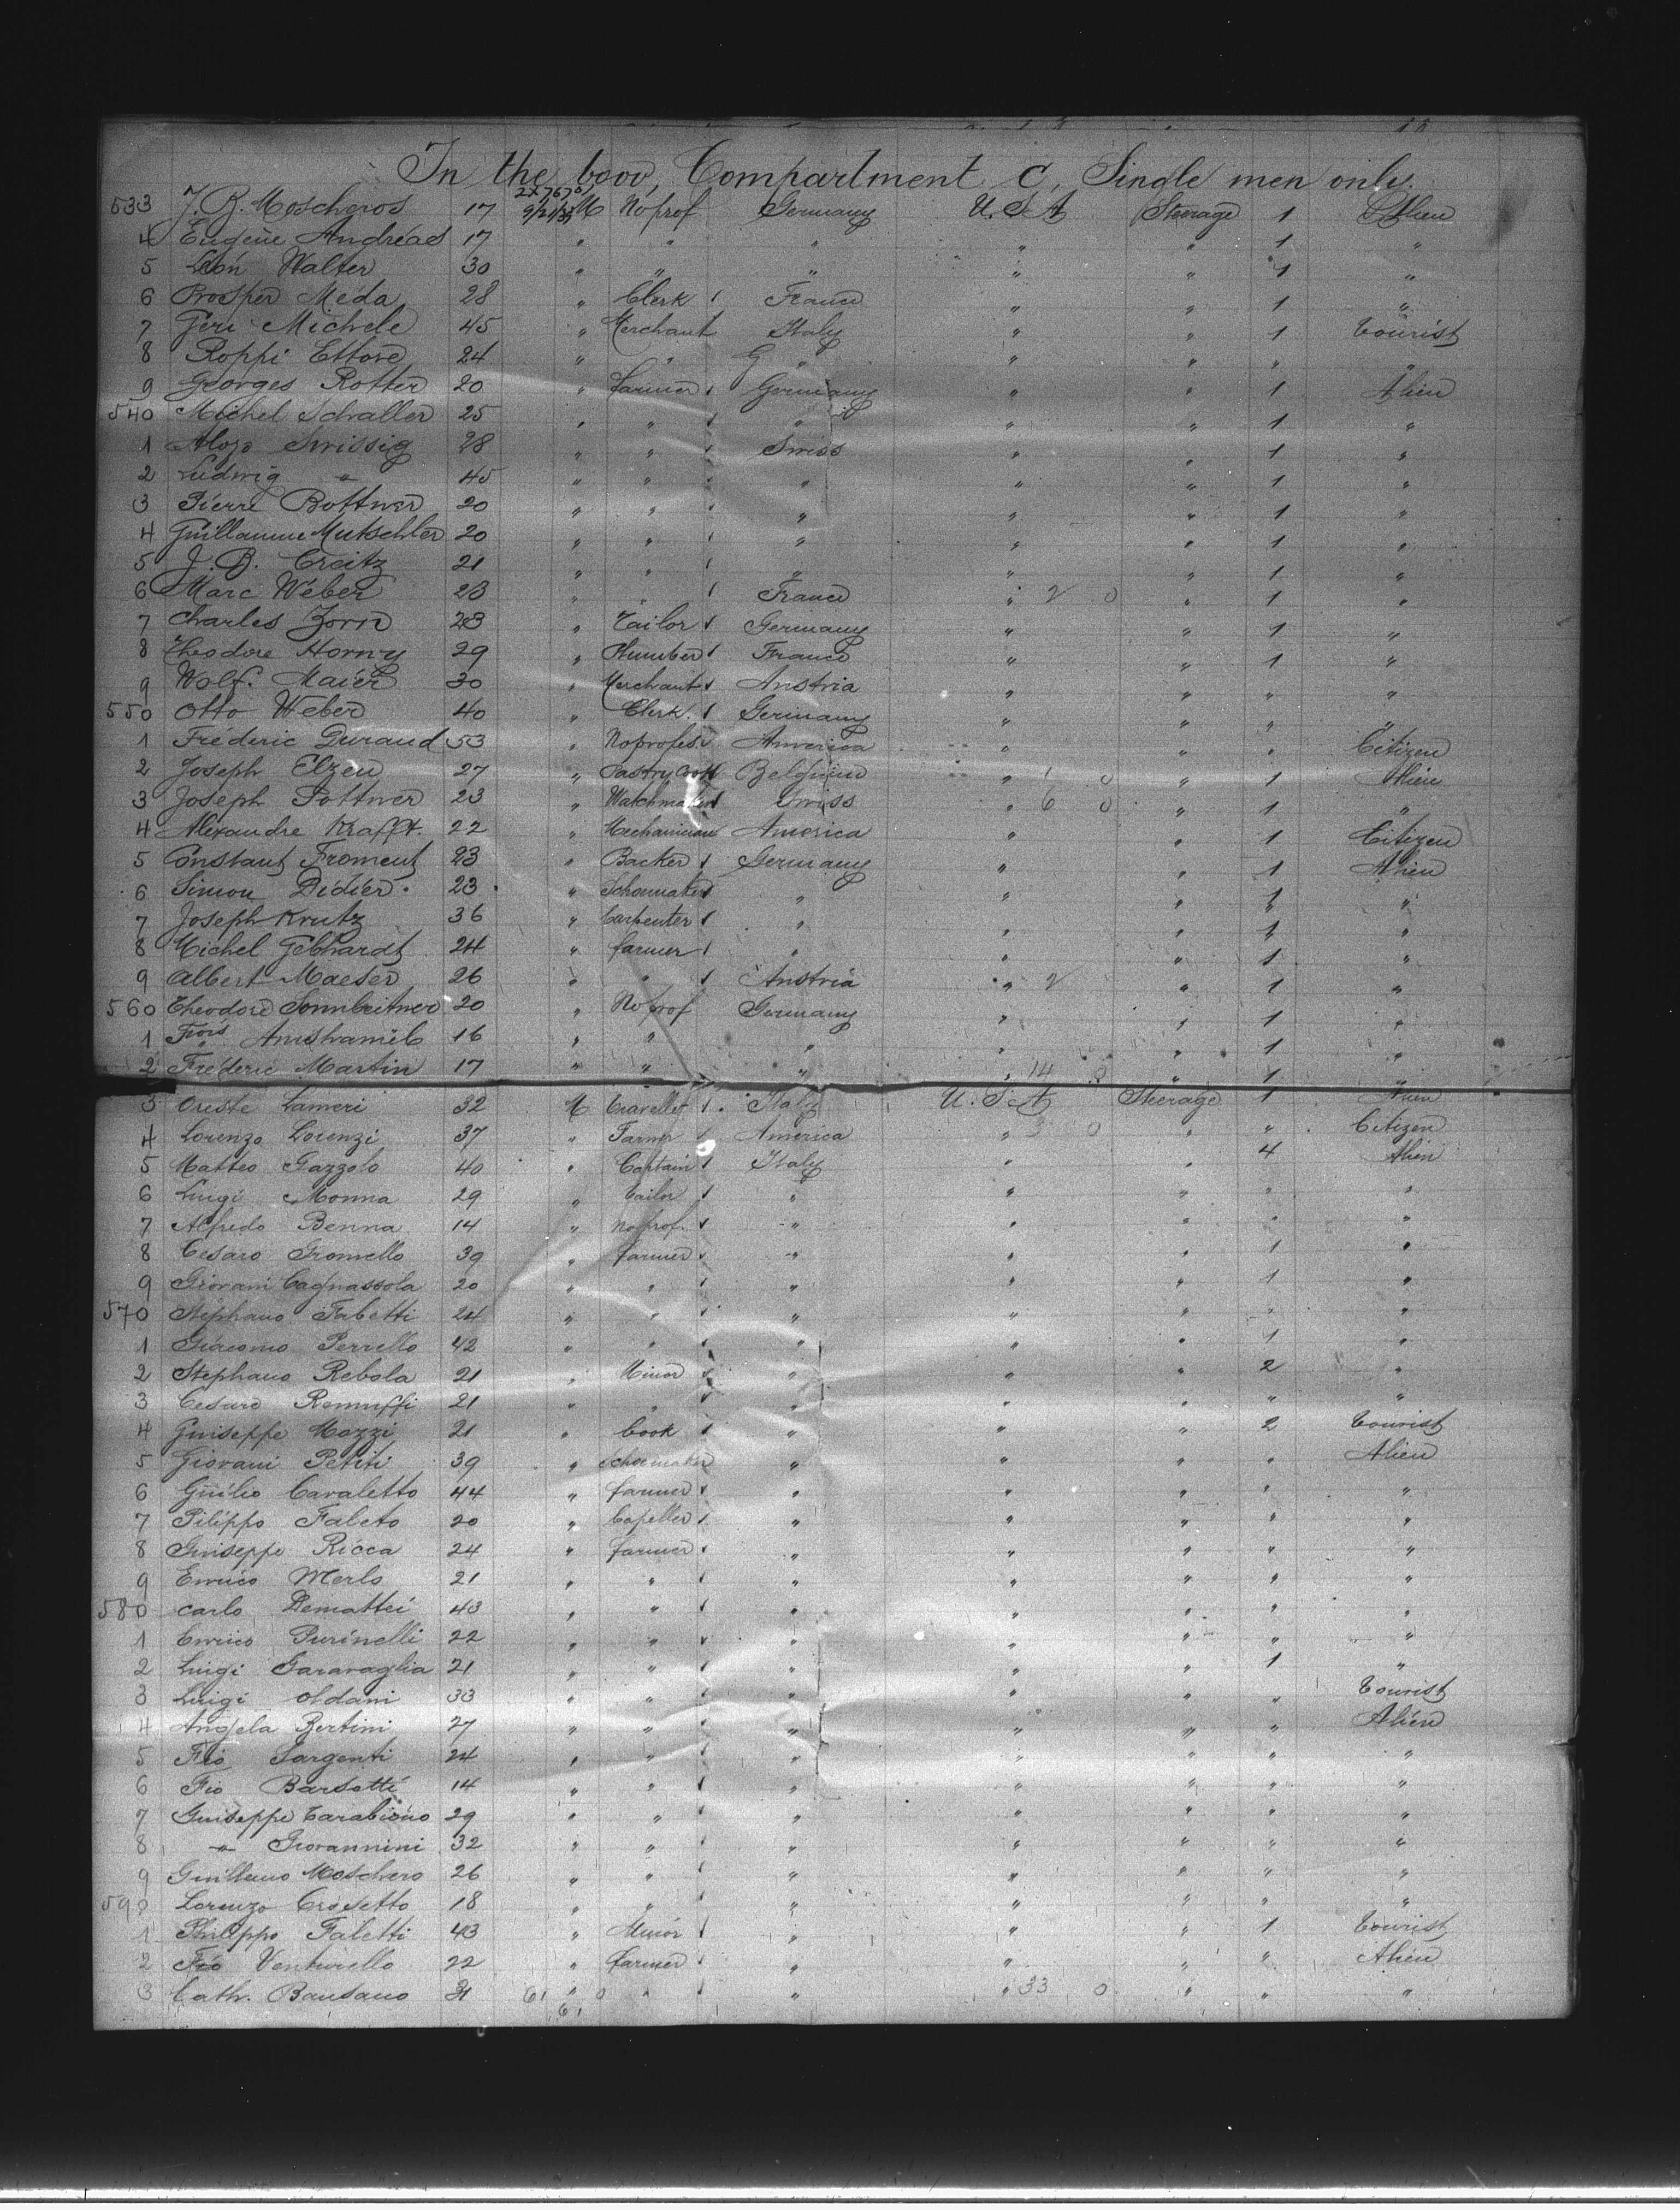 In the boov, Compartment C, Single men only.
2X76701
533 J. B. Moscheros 17 9/21/33 M No prof Germany U. S A Steerage 1 Alien
4 Eugène Andréas 17 " " " " " 1 "
5 Léon Walter 30 " " " " " 1 "
6 Prosper Méda 28 " Clerk France " " 1 "
7 Geri Michele 45 " Merchant Italy " " 1 Tourist
8 Roppi Ettore 24 " " " " " " "
9 Georges Rotter 20 " farmer Germany " " 1 Alien
540 Michel Schaller 25 " " " " " 1 "
1 Aloyo Swissig 28 " " Swiss " " 1 "
2 Ludwig " 45 " " " " " 1 "
3 Pierre Bottner 20 " " " " " 1 "
4 Guillaume Mutschler 20 " " " " " 1 "
5 J. B. Creitz 21 " " " " " 1 "
6 Marc Wéber 23 " " France " 2 0 " 1 "
7 Charles Zorn 23 " Tailor Germany " " 1 "
8 Theodore Horny 29 " Plumber France " " 1 "
9 Wolf. Maier 30 " Merchant Austria " " " "
550 Otto Weber 40 " Clerk. Germany " " " "
1 Fréderic Duraud 53 " No profes. America " " " Citizen
2 Joseph Elzen 27 " Pastry cook Belgium " 1 0 " 1 Alien
3 Joseph Pottner 23 " Watchmaker Swiss " 6 0 " 1 "
4 Alexandre Krafft. 22 " Mechanician America " " 1 Citizen
5 Constant Froment 23 " Backer Germany " " 1 Alien
6 Simon Didier 23 " Schoemaker " " " 1 "
7 Joseph Krutz 36 " Carpenter " " " 1 "
8 Michel Gebhardt 24 " farmer " " " 1 "
9 Albert Maeser 26 " " Austria " 2 " 1 "
560 Theodore Sonnleitner 20 " No prof Germany " " 1 "
1 Frois 16 " " " " " 1 "
2 Fréderic Martin 17 " " " " 14 0 " 1 "
3 Oreste Lameri 32 M Traveller Italy U. S A Steerage 1 Alien
4 Lorenzo Lorenzi 37 " Farmr America " 3 0 " " Citizen
5 Matteo Gazzolo 40 " Captain Italy " " 4 Alien
6 Luigi Monna 29 " Tailor " " " " "
7 Alfredo Benna 14 " no prof. " " " " "
8 Cesaro Gromello 39 " farmer " " " 1 "
9 Giovani Cagnassola 20 " " " " " 1 "
570 Stéphano Fabetti 24 " " " " " " "
1 Giacomo Perrello 42 " " " " " 1 "
2 Stephano Rebola 21 " Minor " " " 2 "
3 Cesaro Remuffi 21 " " " " " " "
4 Guiseppe Mozzi 21 " Cook " " " 2 Tourist
5 Giovani Petiti 39 " Schoemaker " " " " Alien
6 Guilio Cavaletto 44 " farmer " " " " "
7 Pilippo Faleto 20 " Capeller " " " " "
8 Guiseppe Ricca 24 " farmer " " " " "
9 Enrico Merlo 21 " " " " " " "
580 Carlo Demattei 43 " " " " " " "
1 Enrico Purinelli 22 " " " " " " "
2 Luigi Garavaglia 21 " " " " " 1 "
3 Luigi Oldani 33 " " " " " " Tourist
4 Angela Bertini 27 " " " " " " Alien
5 Fco Sargenti 24 " " " " " " "
6 Fco Barsotti 14 " " " " " " "
7 Guiseppe Tarabiono 29 " " " " " " "
8 " Giovannini 32 " " " " " " "
9 Guillano Moschero 26 " " " " " " "
590 Lorenzo Crosetto 18 " " " " " " "
1 Philippo Faletti 43 " Minor " " " 1 Tourist
2 Fco Venturello 22 " farmer " " " " Alien
3 Cath. Bausano 31 61 " 0 " " " 33 0 " " "
61